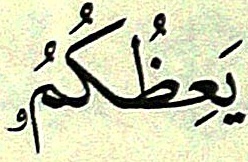 يَعِظُكُمُۥ